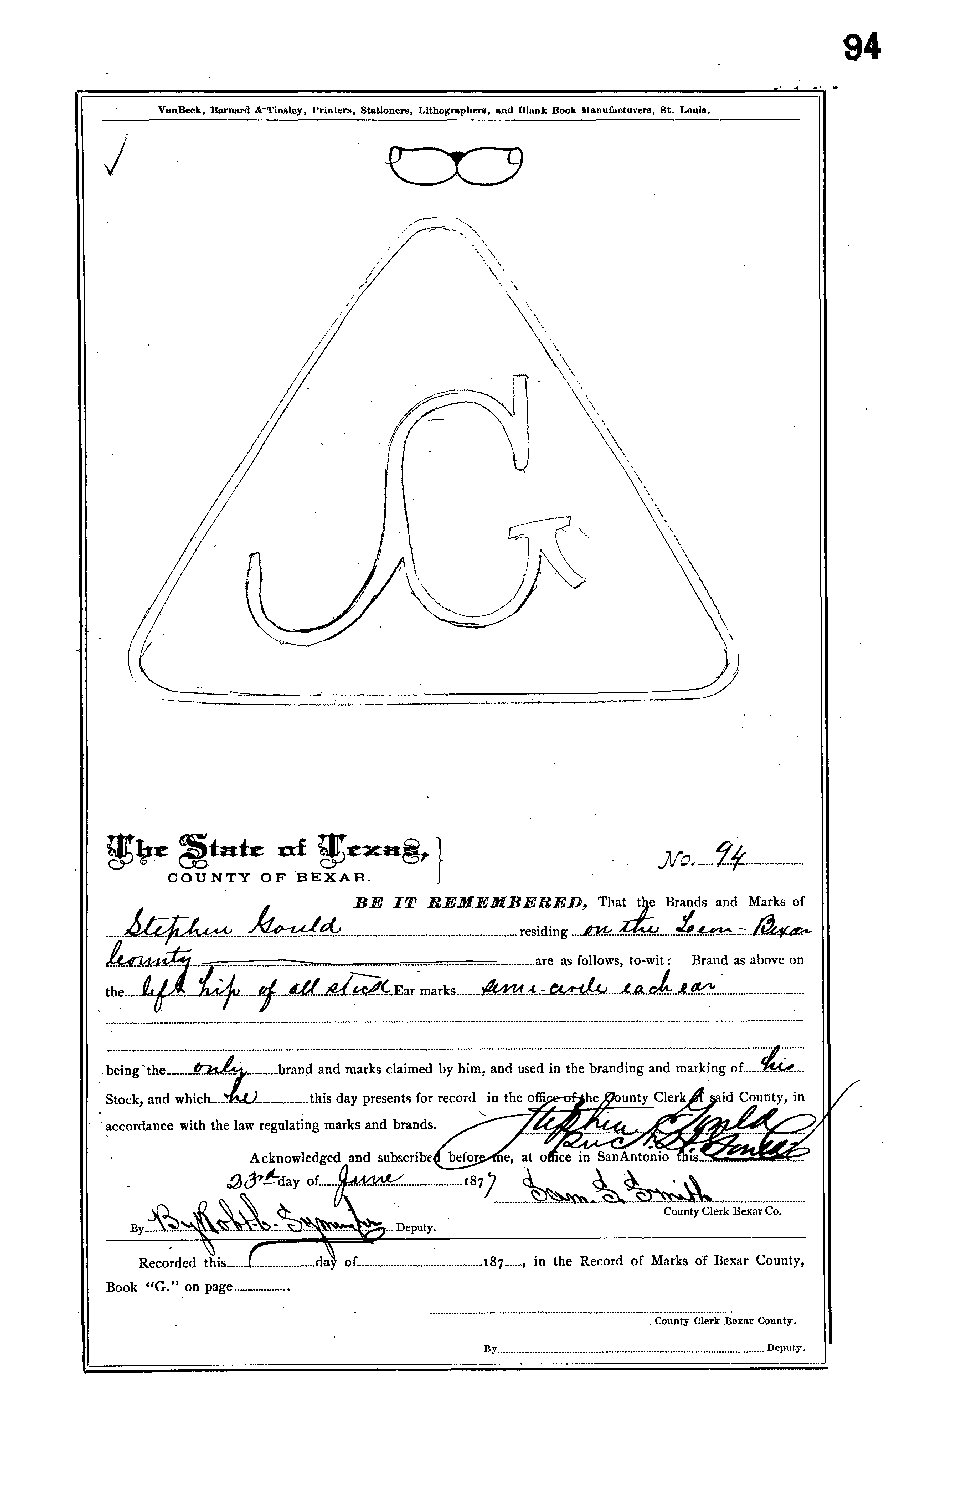 94
VanBeck, Barnard & Tinsley, Printers, Stationers, Lithographers, and Blank Book Manufacturers, St. Louis.
SG
The State of Texas,
COUNTY OF BEXAR.
No. 94
BE IT REMEMBERED, That the Brands and Marks of
Stephen Gould residing on the Leon - Bexar
County are as follows, to-wit: Brand as above on
the left hip of all stock Ear marks semi-circle each ear
being the only brand and marks claimed by him, and used in the branding and marking of his
Stock, and which he this day presents for record in the office of the County Clerk of said County, in
accordance with the law regulating marks and brands. Stephen Gould
Acknowledged and subscribed before me, at office in San Antonio this
23rd day of June 1877 Sam S Smith
County Clerk Bexar Co.
By By Robt. Deputy.
Recorded this day of 187 , in the Record of Marks of Bexar County,
Book "G." on page
County Clerk Bexar County.
By Deputy.